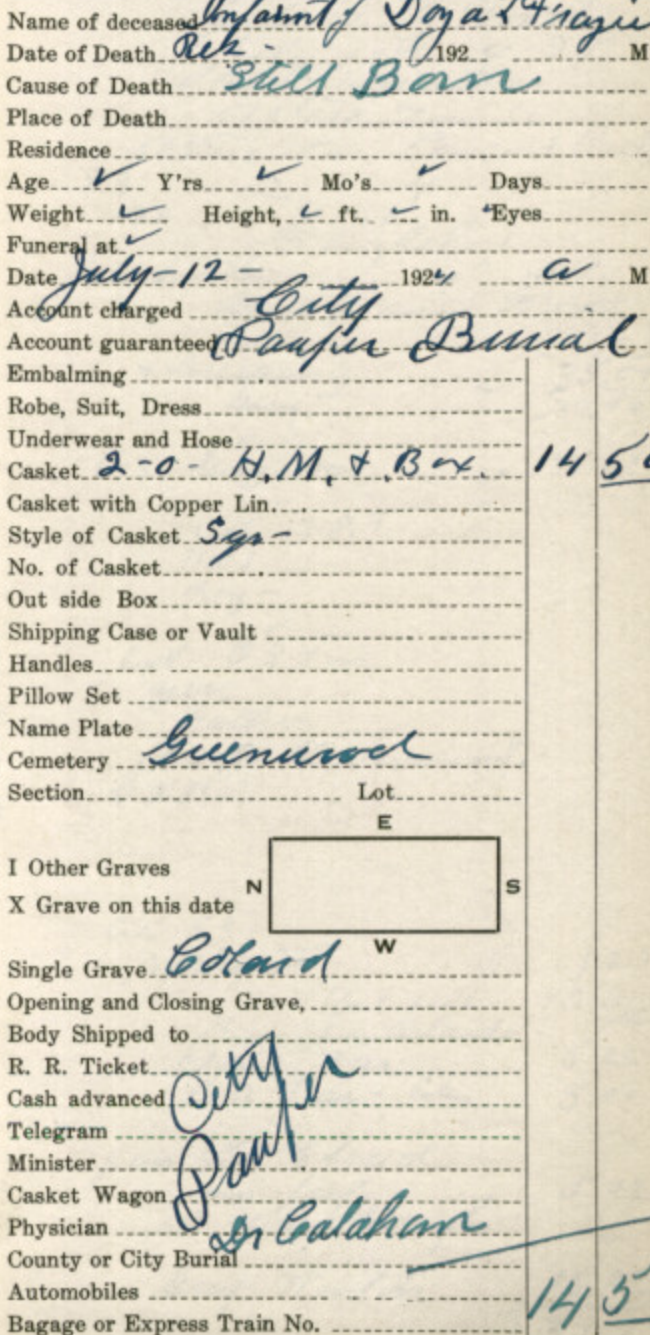 Name of deceased Infant of Doya
Date of Death 192 M
Cause of Death Still Born
Place of Death
Residence
Age ✓ Y'rs ✓ Mo's ✓ Days
Weight ✓ Height, ✓ ft. ✓ in. Eyes
Funeral at ✓
Date July-12- 1924 a M
Account charged City
Account guaranteed Pauper Burial
Embalming
Robe, Suit, Dress
Underwear and Hose
Casket 2-0- H. M. & Box. 14 50
Casket with Copper Lin.
Style of Casket
No. of Casket
Out side Box
Shipping Case or Vault
Handles
Pillow Set
Name Plate
Cemetery Greenwood
Section Lot
E
I Other Graves
N S
X Grave on this date
W
Single Grave Colard
Opening and Closing Grave,
Body Shipped to
R. R. Ticket
Cash advanced City
Telegram
Minister Pauper
Casket Wagon
Physician Dr Calaham
County or City Burial
Automobiles 14 5
Bagage or Express Train No.